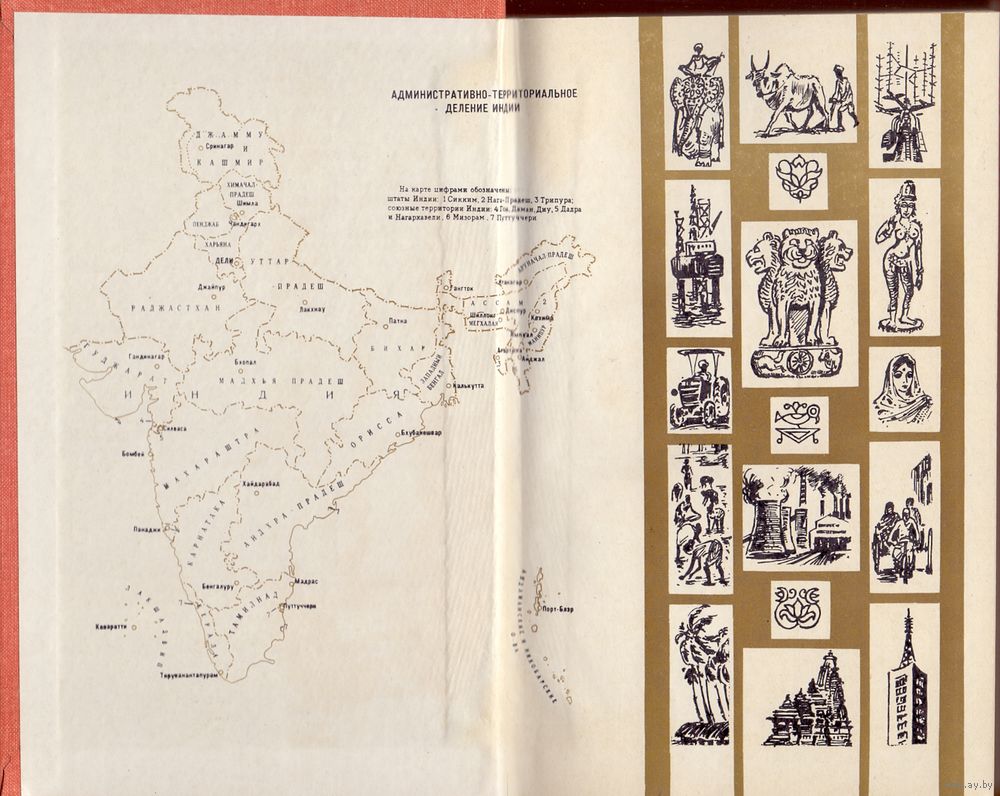 АДМИНИСТРАТИВНО-ТЕРРИТОРИАЛЬНОЕ
ДЕЛЕНИЕ ИНДИИ
На карте цифрами обозначены:
штаты Индии: 1 Сикким, 2 Нага-Прадеш, 3 Трипура;
союзные территории Индии: 4 Гоа, Даман, Диу, 5 Дадра
и Нагархавели, 6 Мизорам, 7 Путтуччери
ДЖАММУ
И
КАШМИР
Сринагар
ХИМАЧАЛ-
ПРАДЕШ
Шимла
ПЕНДЖАБ
Чандигарх
ХАРЬЯНА
ДЕЛИ
УТТАР
ПРАДЕШ
Джайпур
РАДЖАСТХАН
Лакхнау
Патна
БИХАР
Гангток
АРУНАЧАЛ ПРАДЕШ
АССАМ
Диспур
2
Шиллонг
МЕГХАЛАЯ
Кохима
Импхал
МАНИПУР
Айджал
ГУДЖАРАТ
Гандинагар
Бхопал
МАДХЬЯ ПРАДЕШ
ЗАПАДНЫЙ
БЕНГАЛ
Калькутта
ИНДИЯ
ОРИССА
Бхубанешвар
Силваса
Бомбей
МАХАРАШТРА
Хайдарабад
АНДХРА-ПРАДЕШ
Панаджи
КАРНАТАКА
Бенгалуру
Мадрас
Путтуччери
ТАМИЛНАД
КЕРАЛА
7
Тируванантапурам
ЛАКШАДВИП
Каваратти
Порт-Блэр
АНДАМАНСКИЕ И НИКОБАРСКИЕ
О-ВА
www.ay.by